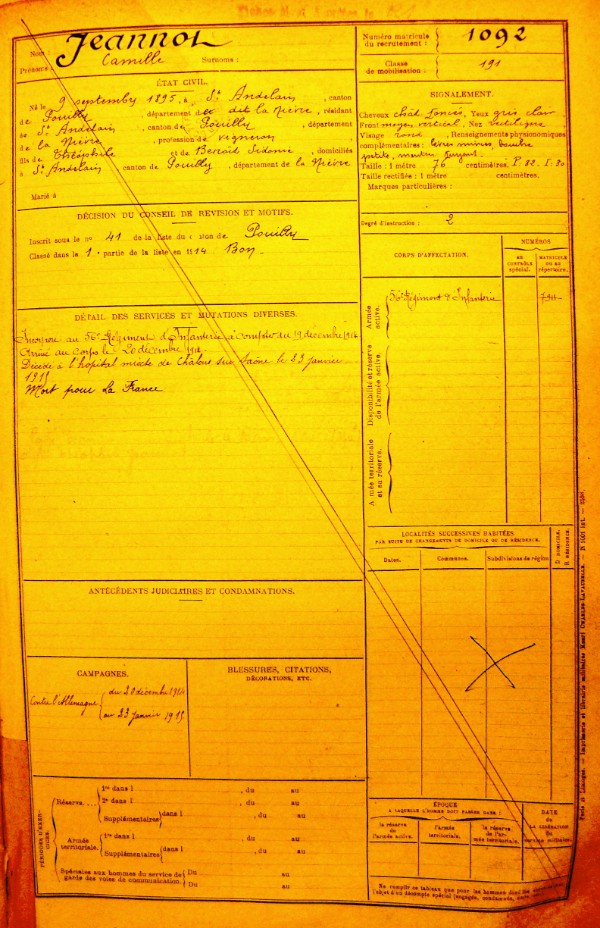 Nom :
JEANNOT
Prénoms :
Camille
Surnoms :
Numéro matricule
du recrutement :
1092
Classe
de mobilisation :
191
ÉTAT CIVIL.
Né le 9 septembre 1895, à St Andelain, canton
de Pouilly, département de la Nièvre, résidant
à St Andelain, canton de Pouilly, département
de la Nièvre, profession de vigneron
fils de Théophile et de Sidonie, domiciliés
à St Andelain canton de Pouilly, département de la Nièvre
Marié à
SIGNALEMENT.
Cheveux chât. foncés, Yeux gris clair
Front moyen, vertical, Nez rectiligne
Visage rond, Renseignements physionomiques
complémentaires : lèvres minces, bouche
petite, menton fuyant.
Taille : 1 mètre 76 centimètres.
Taille rectifiée : 1 mètre centimètres.
Marques particulières :
Degré d'instruction : 2
DÉCISION DU CONSEIL DE REVISION ET MOTIFS.
Inscrit sous le no 41 de la liste du canton de Pouilly
Classé dans la 1e partie de la liste en 1914 Bon
DÉTAIL DES SERVICES ET MUTATIONS DIVERSES.
Incorporé au 56e Régiment d'Infanterie à compter du 19 décembre 1914
Arrivé au Corps le 20 décembre 1914
Décédé à l'hopital mixte de Chalons sur Saône le 23 janvier
1915
Mort pour La France
CORPS D'AFFECTATION.
NUMÉROS
AU CONTRÔLE spécial.
MATRICULE OU AU répertoire.
Armée active.
56e Régiment d'Infanterie
Disponibilité et réserve de l'armée active.
Armée territoriale et sa réserve.
LOCALITÉS SUCCESSIVES HABITÉES
PAR SUITE DE CHANGEMENTS DE DOMICILE OU DE RÉSIDENCE.
Dates.
Communes.
Subdivisions de région.
D. DOMICILE.
R. RÉSIDENCE.
ANTÉCÉDENTS JUDICIAIRES ET CONDAMNATIONS.
CAMPAGNES.
Contre l'Allemagne
du 20 décembre 1914
au 23 janvier 1915
BLESSURES, CITATIONS,
DÉCORATIONS, ETC.
PÉRIODES D'EXERCICES.
Réserve....
1re dans l , du au
2e dans l , du au
Supplémentaires dans l , du au
Armée territoriale.
1re dans l , du au
Supplémentaires dans l , du au
Spéciales aux hommes du service de garde des voies de communication.
Du au
Du au
ÉPOQUE
A LAQUELLE L'HOMME DOIT PASSER DANS :
la réserve de l'armée active.
l'armée territoriale.
la réserve de l'armée territoriale.
DATE
de
LA LIBÉRATION
du
service militaire.
Ne remplir ce tableau que pour les hommes dont
l'objet d'un décompte spécial (engagés, condamnés,
Paris et Limoges. — Imprimerie et librairie militaires Henri CHARLES-LAVAUZELLE.